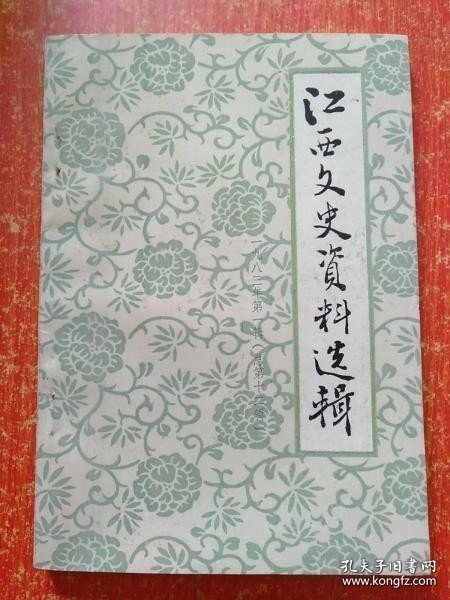 江西文史資料选輯
一九八三年第一辑(总第十二辑)
孔夫子旧书网
www.kongfz.com